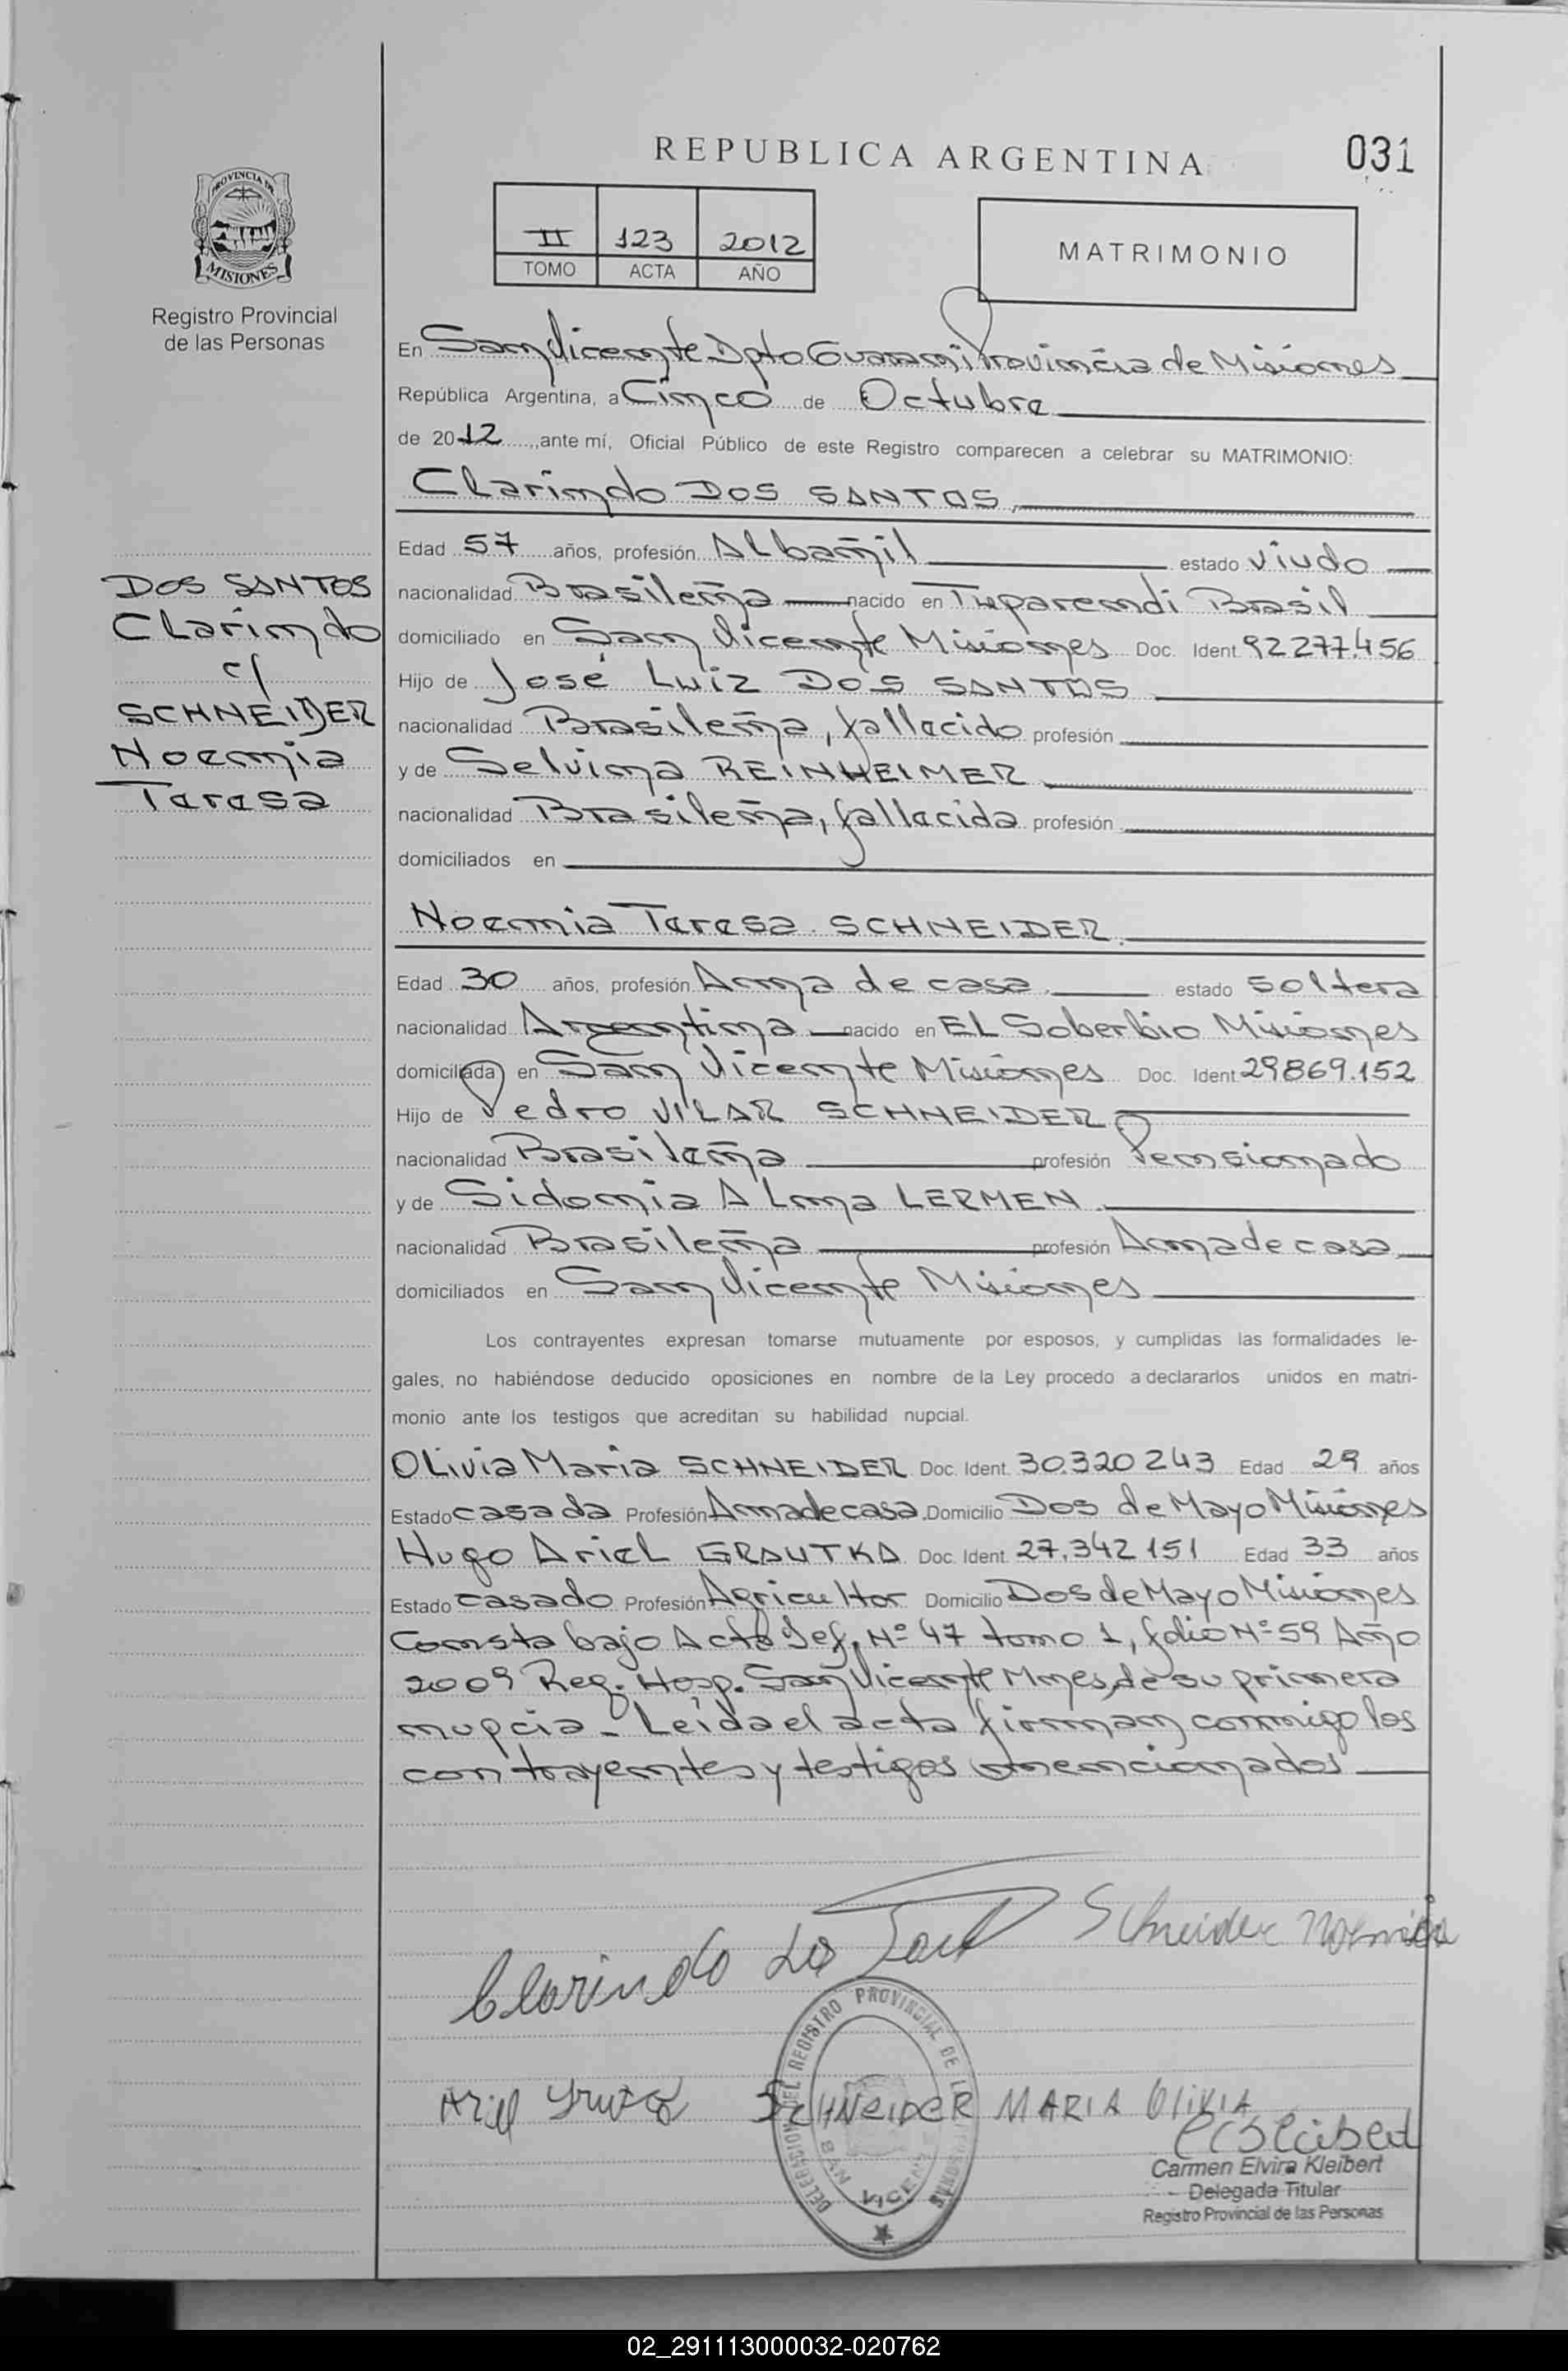 REPUBLICA ARGENTINA
031
PROVINCIA DE
MISIONES
Registro Provincial
de las Personas
II 123 2012
TOMO ACTA AÑO
MATRIMONIO
En San Vicente Dpto Guarani Provincia de Misiones
República Argentina, a Cinco de Octubre
de 2012, ante mí, Oficial Público de este Registro comparecen a celebrar su MATRIMONIO:
Clarindo DOS SANTOS
Edad 57 años, profesión Albañil estado viudo
nacionalidad Brasileña nacido en Tuparendi Brasil
domiciliado en San Vicente Misiones Doc. Ident. 92277.456
Hijo de José Luiz DOS SANTOS
nacionalidad Brasileña, fallecido profesión
y de Selvina REINHEIMER
nacionalidad Brasileña, fallecida profesión
domiciliados en
DOS SANTOS
Clarindo
c/
SCHNEIDER
Noemia
Teresa
Noemia Teresa SCHNEIDER
Edad 30 años, profesión Ama de casa estado soltera
nacionalidad Argentina nacido en EL Soberbio Misiones
domiciliada en San Vicente Misiones Doc. Ident. 29869.152
Hijo de Pedro VILAR SCHNEIDER
nacionalidad Brasileña profesión Pensionado
y de Sidonia Alma LERMEN
nacionalidad Brasileña profesión Ama de casa
domiciliados en San Vicente Misiones
Los contrayentes expresan tomarse mutuamente por esposos, y cumplidas las formalidades le-
gales, no habiéndose deducido oposiciones en nombre de la Ley procedo a declararlos unidos en matri-
monio ante los testigos que acreditan su habilidad nupcial.
Olivia Maria SCHNEIDER Doc. Ident. 30.320 243 Edad 29 años
Estado casada Profesión Ama de casa Domicilio Dos de Mayo Misiones
Hugo Ariel GRAUTKA Doc. Ident. 27.342 151 Edad 33 años
Estado casado Profesión Agricultor Domicilio Dos de Mayo Misiones
Consta bajo Acta Def. Nº 47 tomo 1, folio Nº 59 Año
2009 Reg. Hosp. San Vicente Mnes, de su primera
nupcia - Leida el acta firman conmigo los
contrayentes y testigos mencionados
Clarindo Schneider Noemia
DELEGACION DEL REGISTRO PROVINCIAL DE LAS PERSONAS
SAN VICENTE
Ariel
SCHNEIDER MARIA OLIVIA
Carmen Elvira Kleibert
Delegada Titular
Registro Provincial de las Personas
02_291113000032-020762